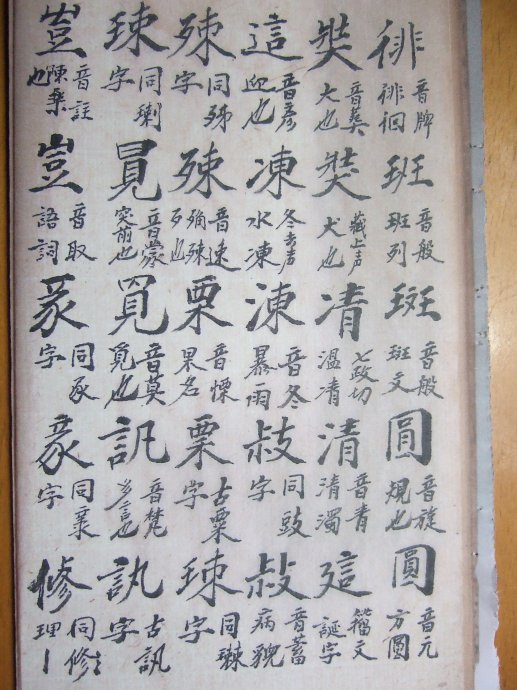 徘 音牌 徘徊
班 音般 班列
斑 音般 斑文
圓 音旋 規也
圓 音元 方圓
奘 音葬 大也
奘 藏上声 犬也
凊 七政切 温凊
清 音青 清濁
籀文 誕字
這 音彥 迎也
凍 冬去声 水凍
涷 音冬 暴雨
敊 同豉 字
音蓄 病貌
殊 同殊 字
殐 音速 殐也
栗 音慄 果名
粟 古粟 字
同 字
同 字
冒 音蒙 突前也
覓 音莫 覓也
訊 音梵 多言也
訙 古訊 字
壴 音註 陳樂也
豈 音取 語詞
同豕 字
同 字
修 同修 理